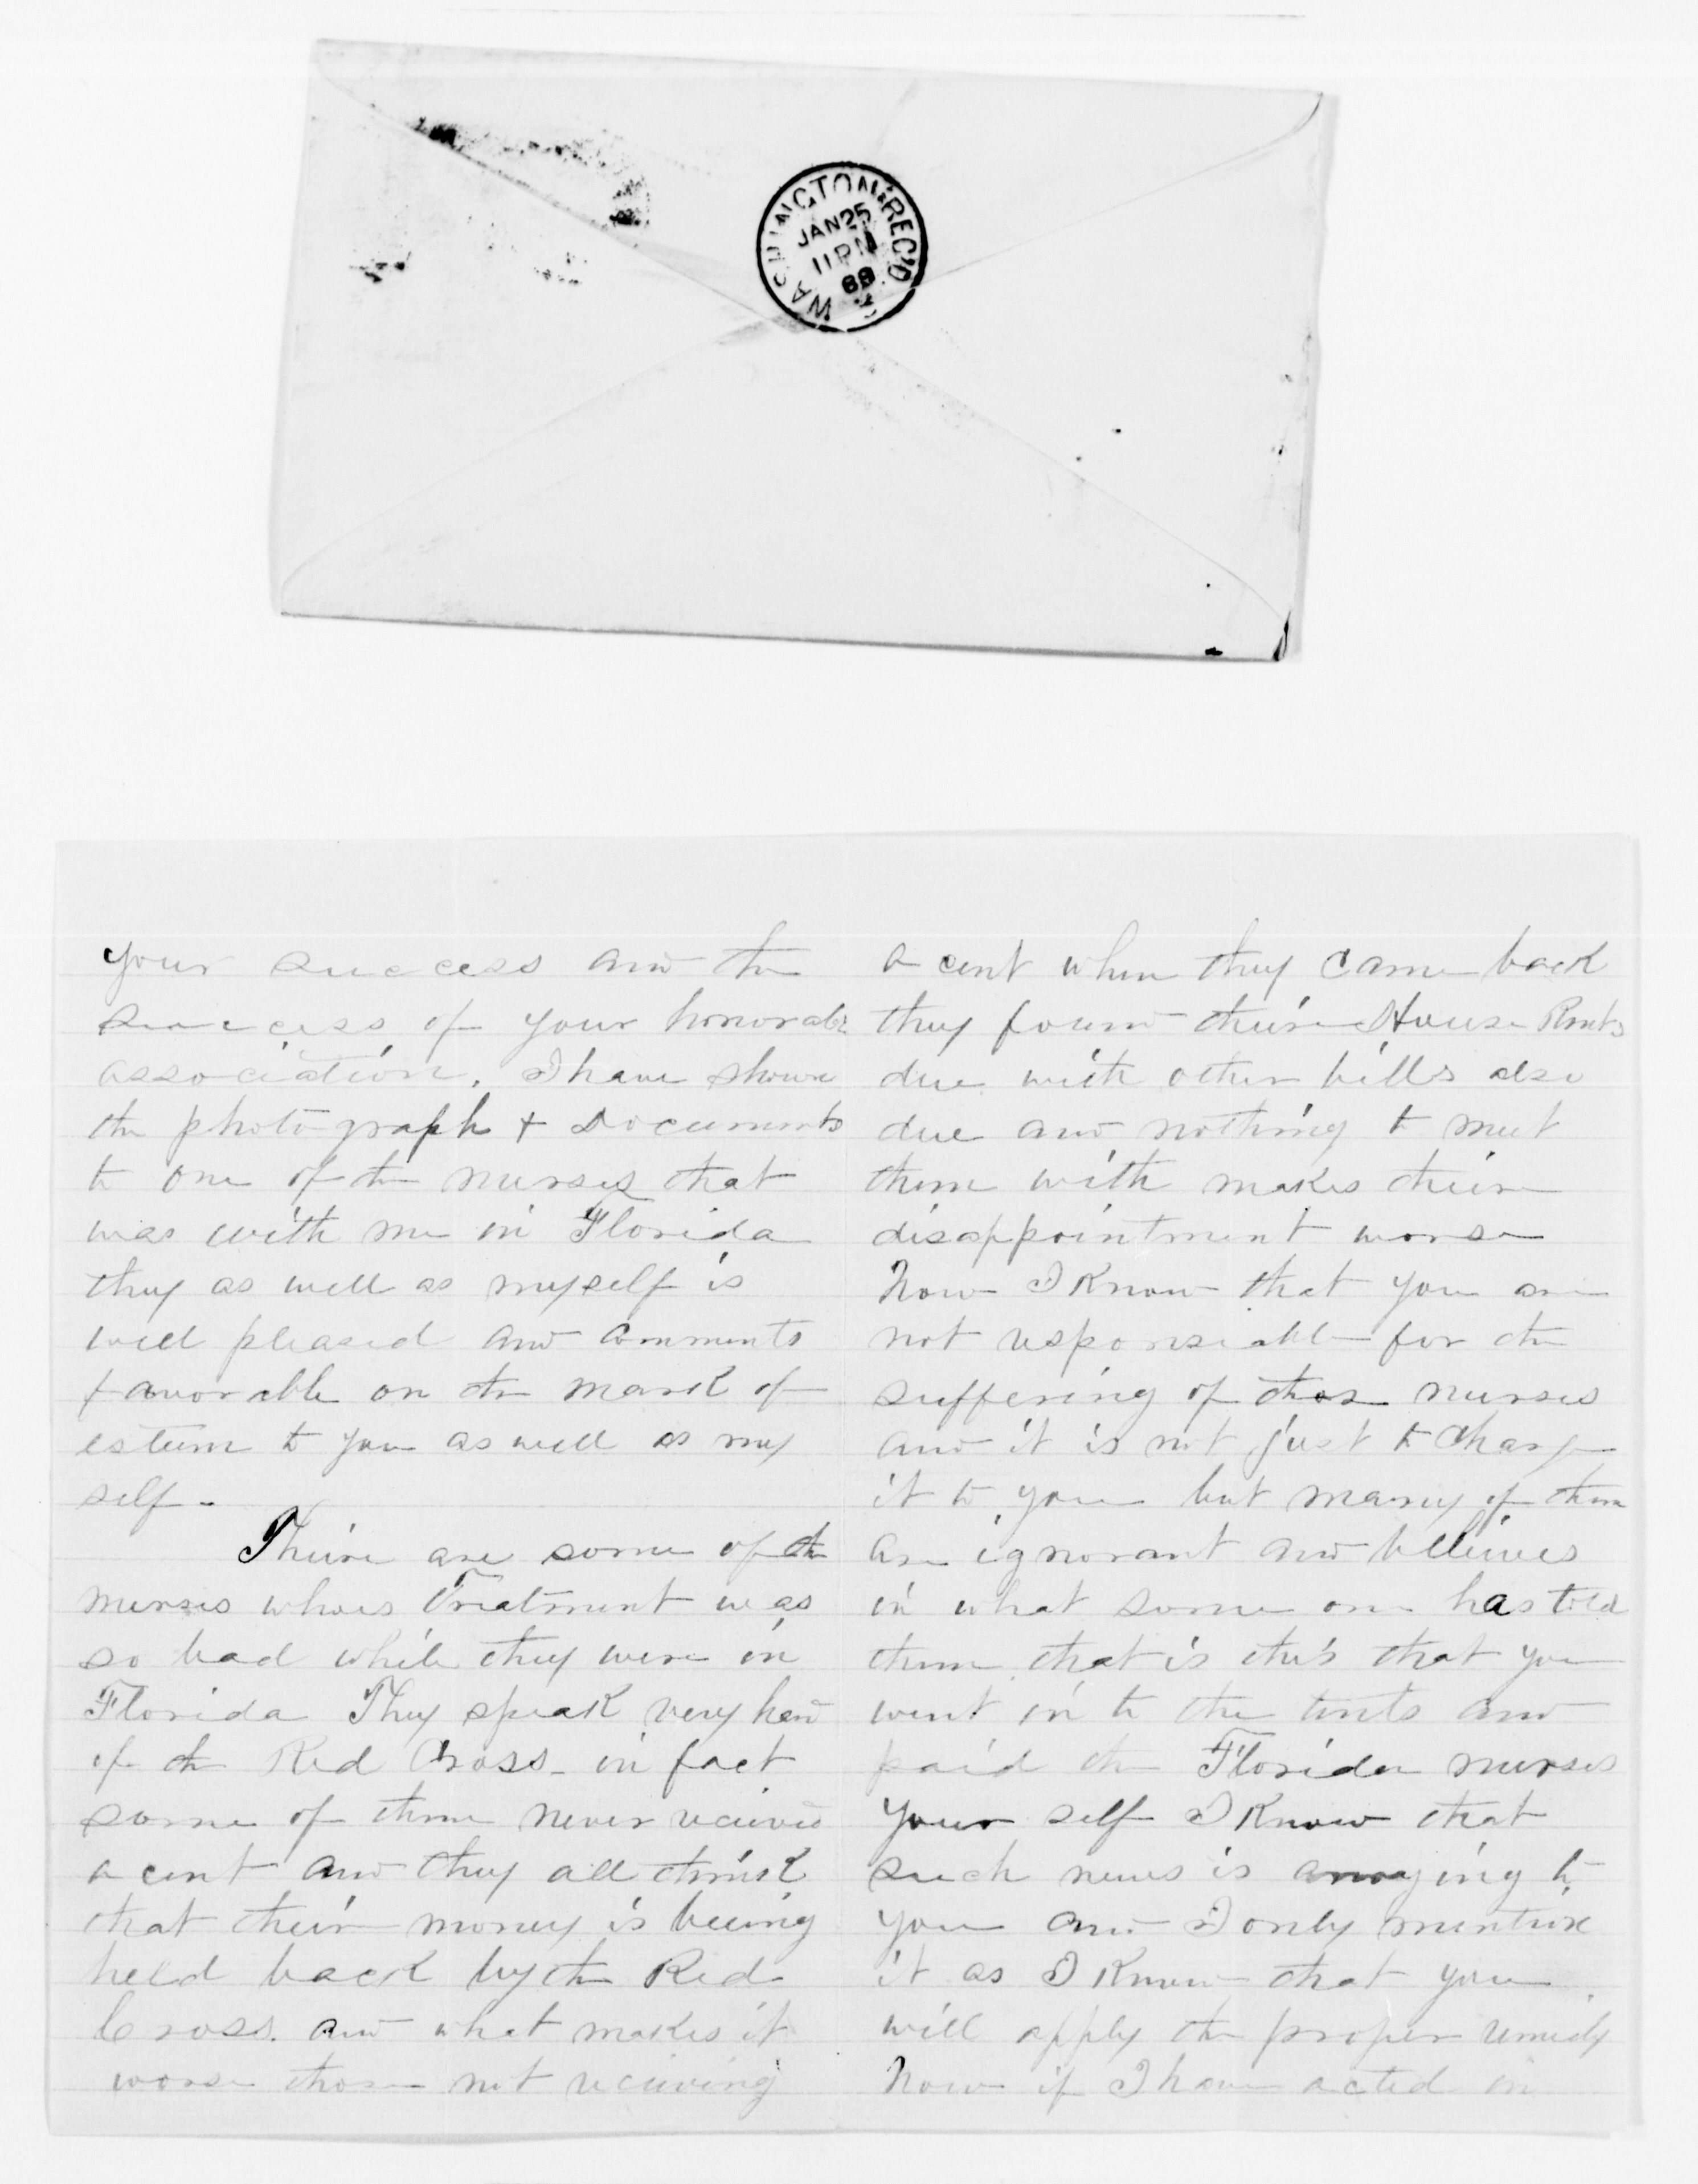 WASHINGTON REC'D
JAN 25
11 PM
89
your success and the
success of your honorable
association, I have shown
the photograph + Documents
to one of the nurses that
was with me in Florida
they as well as myself is
well pleased and comments
favorable on the mark of
esteem to you as well as my
self-
Theire are some of the
nurses whoes Treatment was
so bad while they were in
Florida They speak very hard
of the Red Cross - in fact
some of them never recieved
a cent and they all think
that their money is beeing
held back by the Red
Cross. and what makes it
worse those not recieving
a cent when they came back
they found theire House Rents
due with other bills also
due and nothing to meet
them with makes theire
disappointment worse
Now I Know that you are
not responseable for the
suffering of those nurses
and it is not just to charge
it to you but many of them
are ignorant and belleives
in what some one has told
them that is this that you
went in to the tents and
paid the Florida nurses
your self I Know that
such news is annoying to
you and I only mention
it as I Know that you
will apply the proper remidy
Now if I have acted in